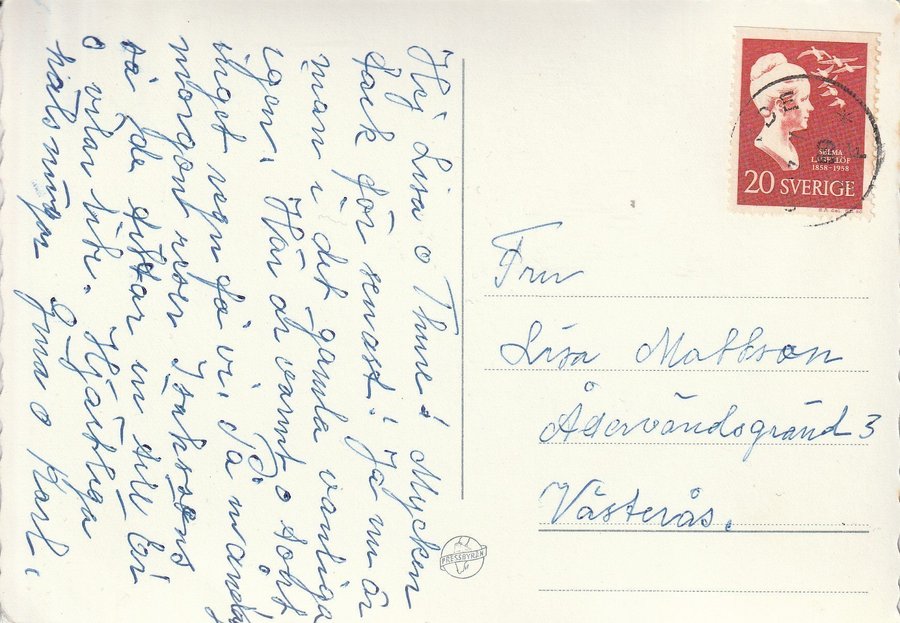 Hej Lisa o Thure! Mycken
tack för senast. Ja nu är
man i det gamla vanliga
igen. Här är varmt o sånt
inget regn få vi. På måndag
morgon reser Isaksons
så Eda tittar in till Er
o vilar lite. Hjärtliga
hälsningar Irma o Karl.
SELMA
LAGERLÖF
1858-1958
20 SVERIGE
Fru
Lisa Mattsson
Ådervändsgränd 3
Västerås.
PRESSBYRÅN